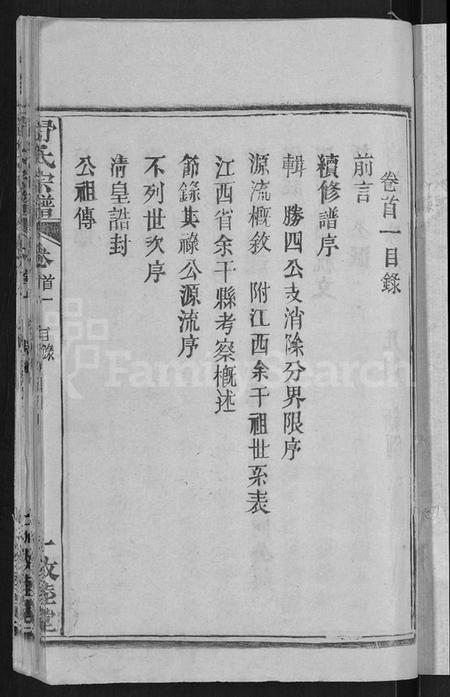 卷首一目錄
前言
續修譜序
輯 勝四公支消除分界限序
源流概敘 附江西余干祖世系表
江西省余干縣考察概述
節錄其祿公源流序
不列世次序
清皇誥封
公祖傳
氏宗譜
卷首一 目錄
一 敦睦堂
FamilySearch